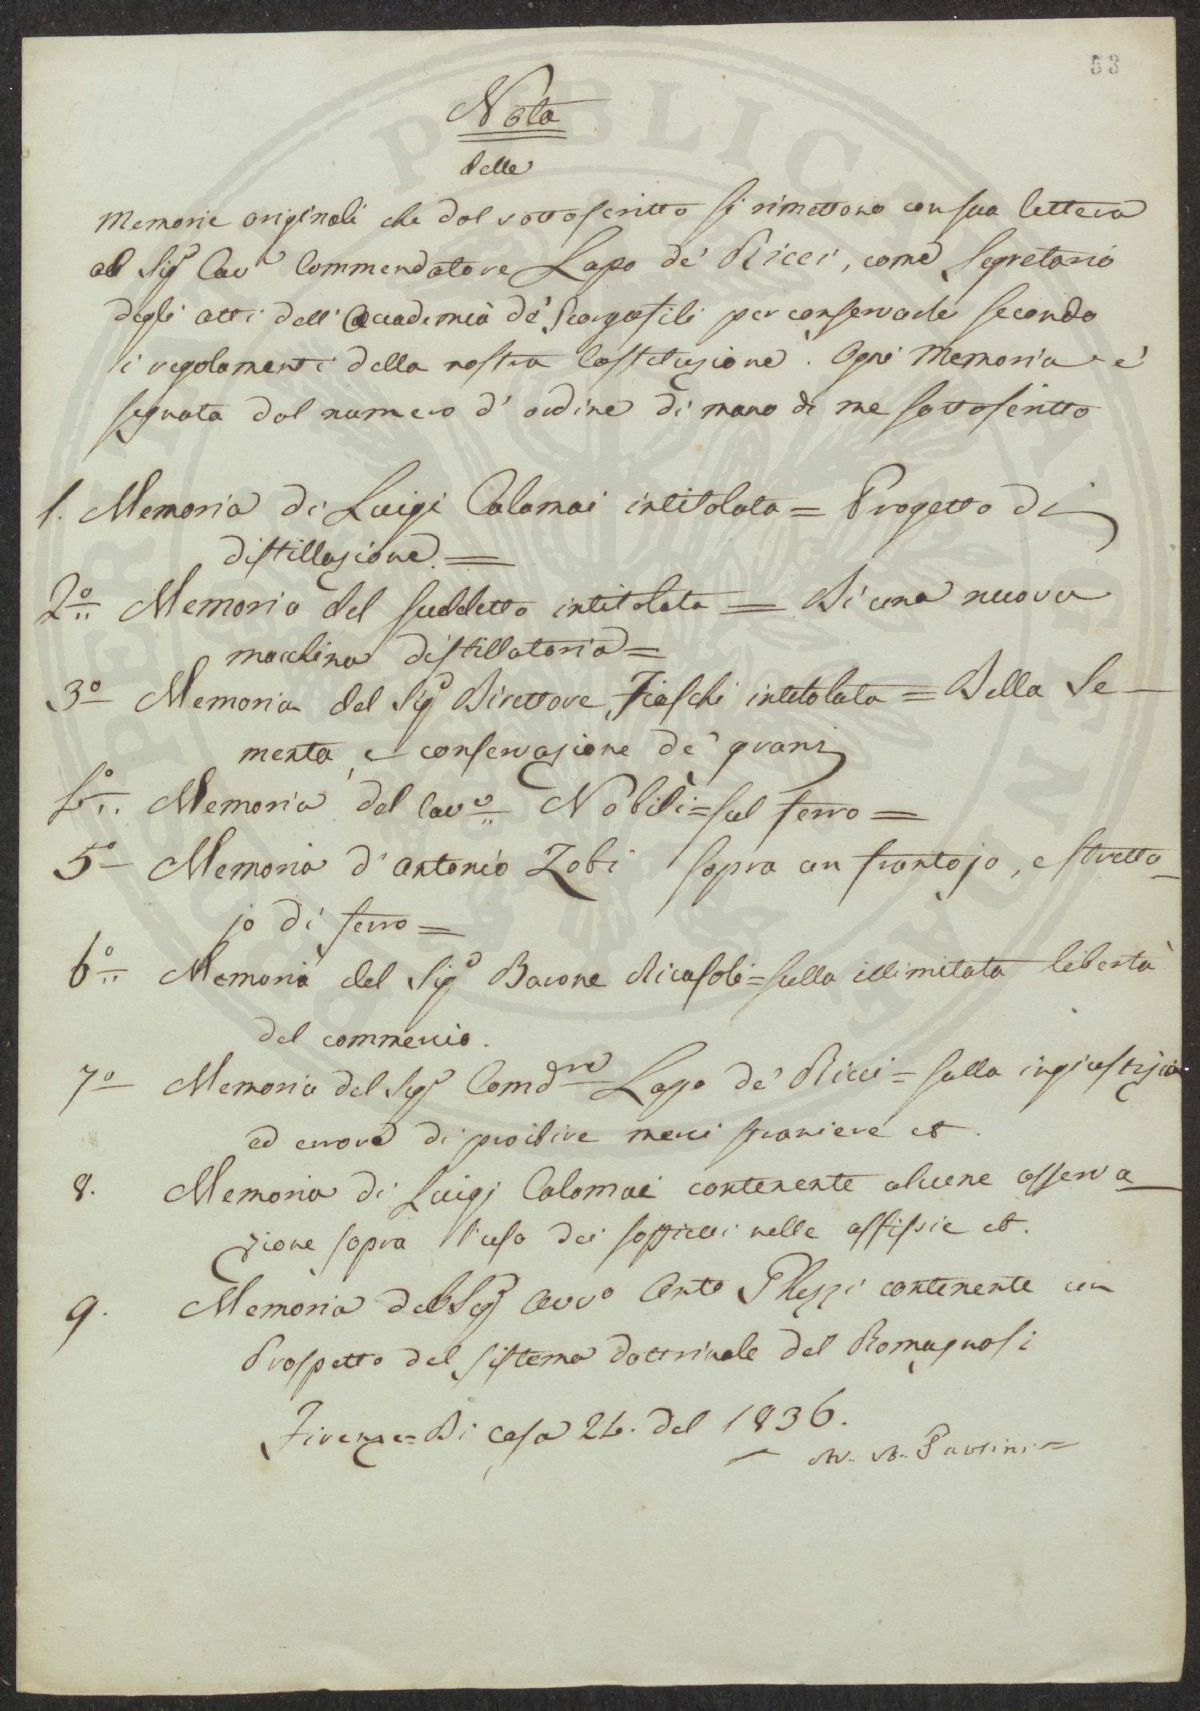 53
Nota
delle
Memorie originali che dal sottoscritto si rimettono con sua lettera
al Sigr Cavr Commendatore Lapo de' Ricci, come Segretario
degli atti dell' Accademia de' Georgofili per conservarle secondo
i regolamenti della nostra Costituzione. Ogni Memoria è
segnata dal numero d' ordine di mano di me sottoscritto
1. Memoria di Luigi Calamai intitolata = Progetto di
distillazione =
2º Memoria del suddetto intitolata = Di una nuova
macchina distillatoria =
3º Memoria del Sigr Direttore Fiaschi intitolata = Della Se-
menta, e conservazione de' grani
4º Memoria del Cavre Nobili = sul ferro =
5º Memoria d' Antonio Zobi sopra un frantojo, e stretto-
jo di ferro =
6º Memoria del Sigr Barone Ricasoli = sulla illimitata libertà
del commercio.
7º Memoria del Sigr Comdre Lapo de' Ricci = sulla ingiustizia
ed errore di proibire merci straniere et.
8. Memoria di Luigi Calamai contenente alcune osserva-
zione sopra l'uso dei soffietti nelle assfisie et.
9. Memoria del Sigr Avvo Anto contenente un
Prospetto del sistema dottrinale del Romagnosi
Firenze = Di casa 24. del 1836.